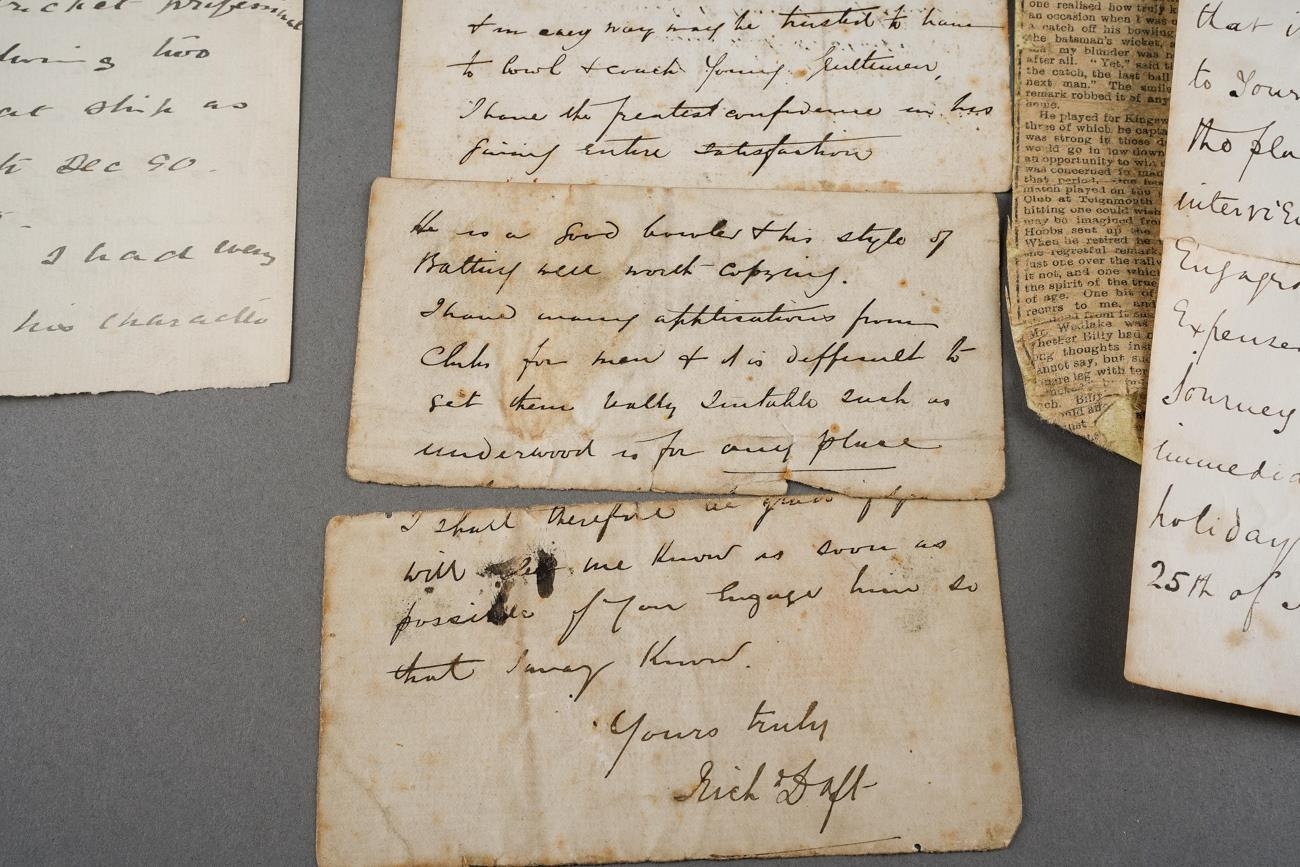 cricket professional
during two
at ship as
Dec 90.
I had every
his character
& in every way may be trusted to have
to bowl & coach young gentlemen,
I have the greatest confidence in his
giving entire satisfaction
He is a good bowler & his style of
Batting well worth copying.
I have many applications from
Clubs for men & it is difficult to
get them really suitable such as
underwood is for any place
I shall therefore be glad if you
will let me know as soon as
possible if you engage him so
that I may know.
Yours truly
Rich.d Daft
one realised how truly k
an occasion when I was
a catch off his bowling
the batsman's wicket, a
my blunder was n
after all. "Yet," said
the catch, the last ball
next man." The smile
remark robbed it of any
He played for Kingsw
three of which he capta
was strong in those d
would go in low down
an opportunity to win
was concerned in man
that period,
match played on the
Club at Teignmouth
hitting one could wish
may be imagined from
Hobbs sent up the
When he retired he
the regretful remark
just one over the rail
it not, and one which
the spirit of the true
of age. One bit of
recurs to me, and
Mr. Wedlake was
whether Billy had
long thoughts
cannot say, but su
square leg with ter
Billy
that i
to Your
the pla
interview
Engage
Expenses
Journey
immedia
holiday
25th of